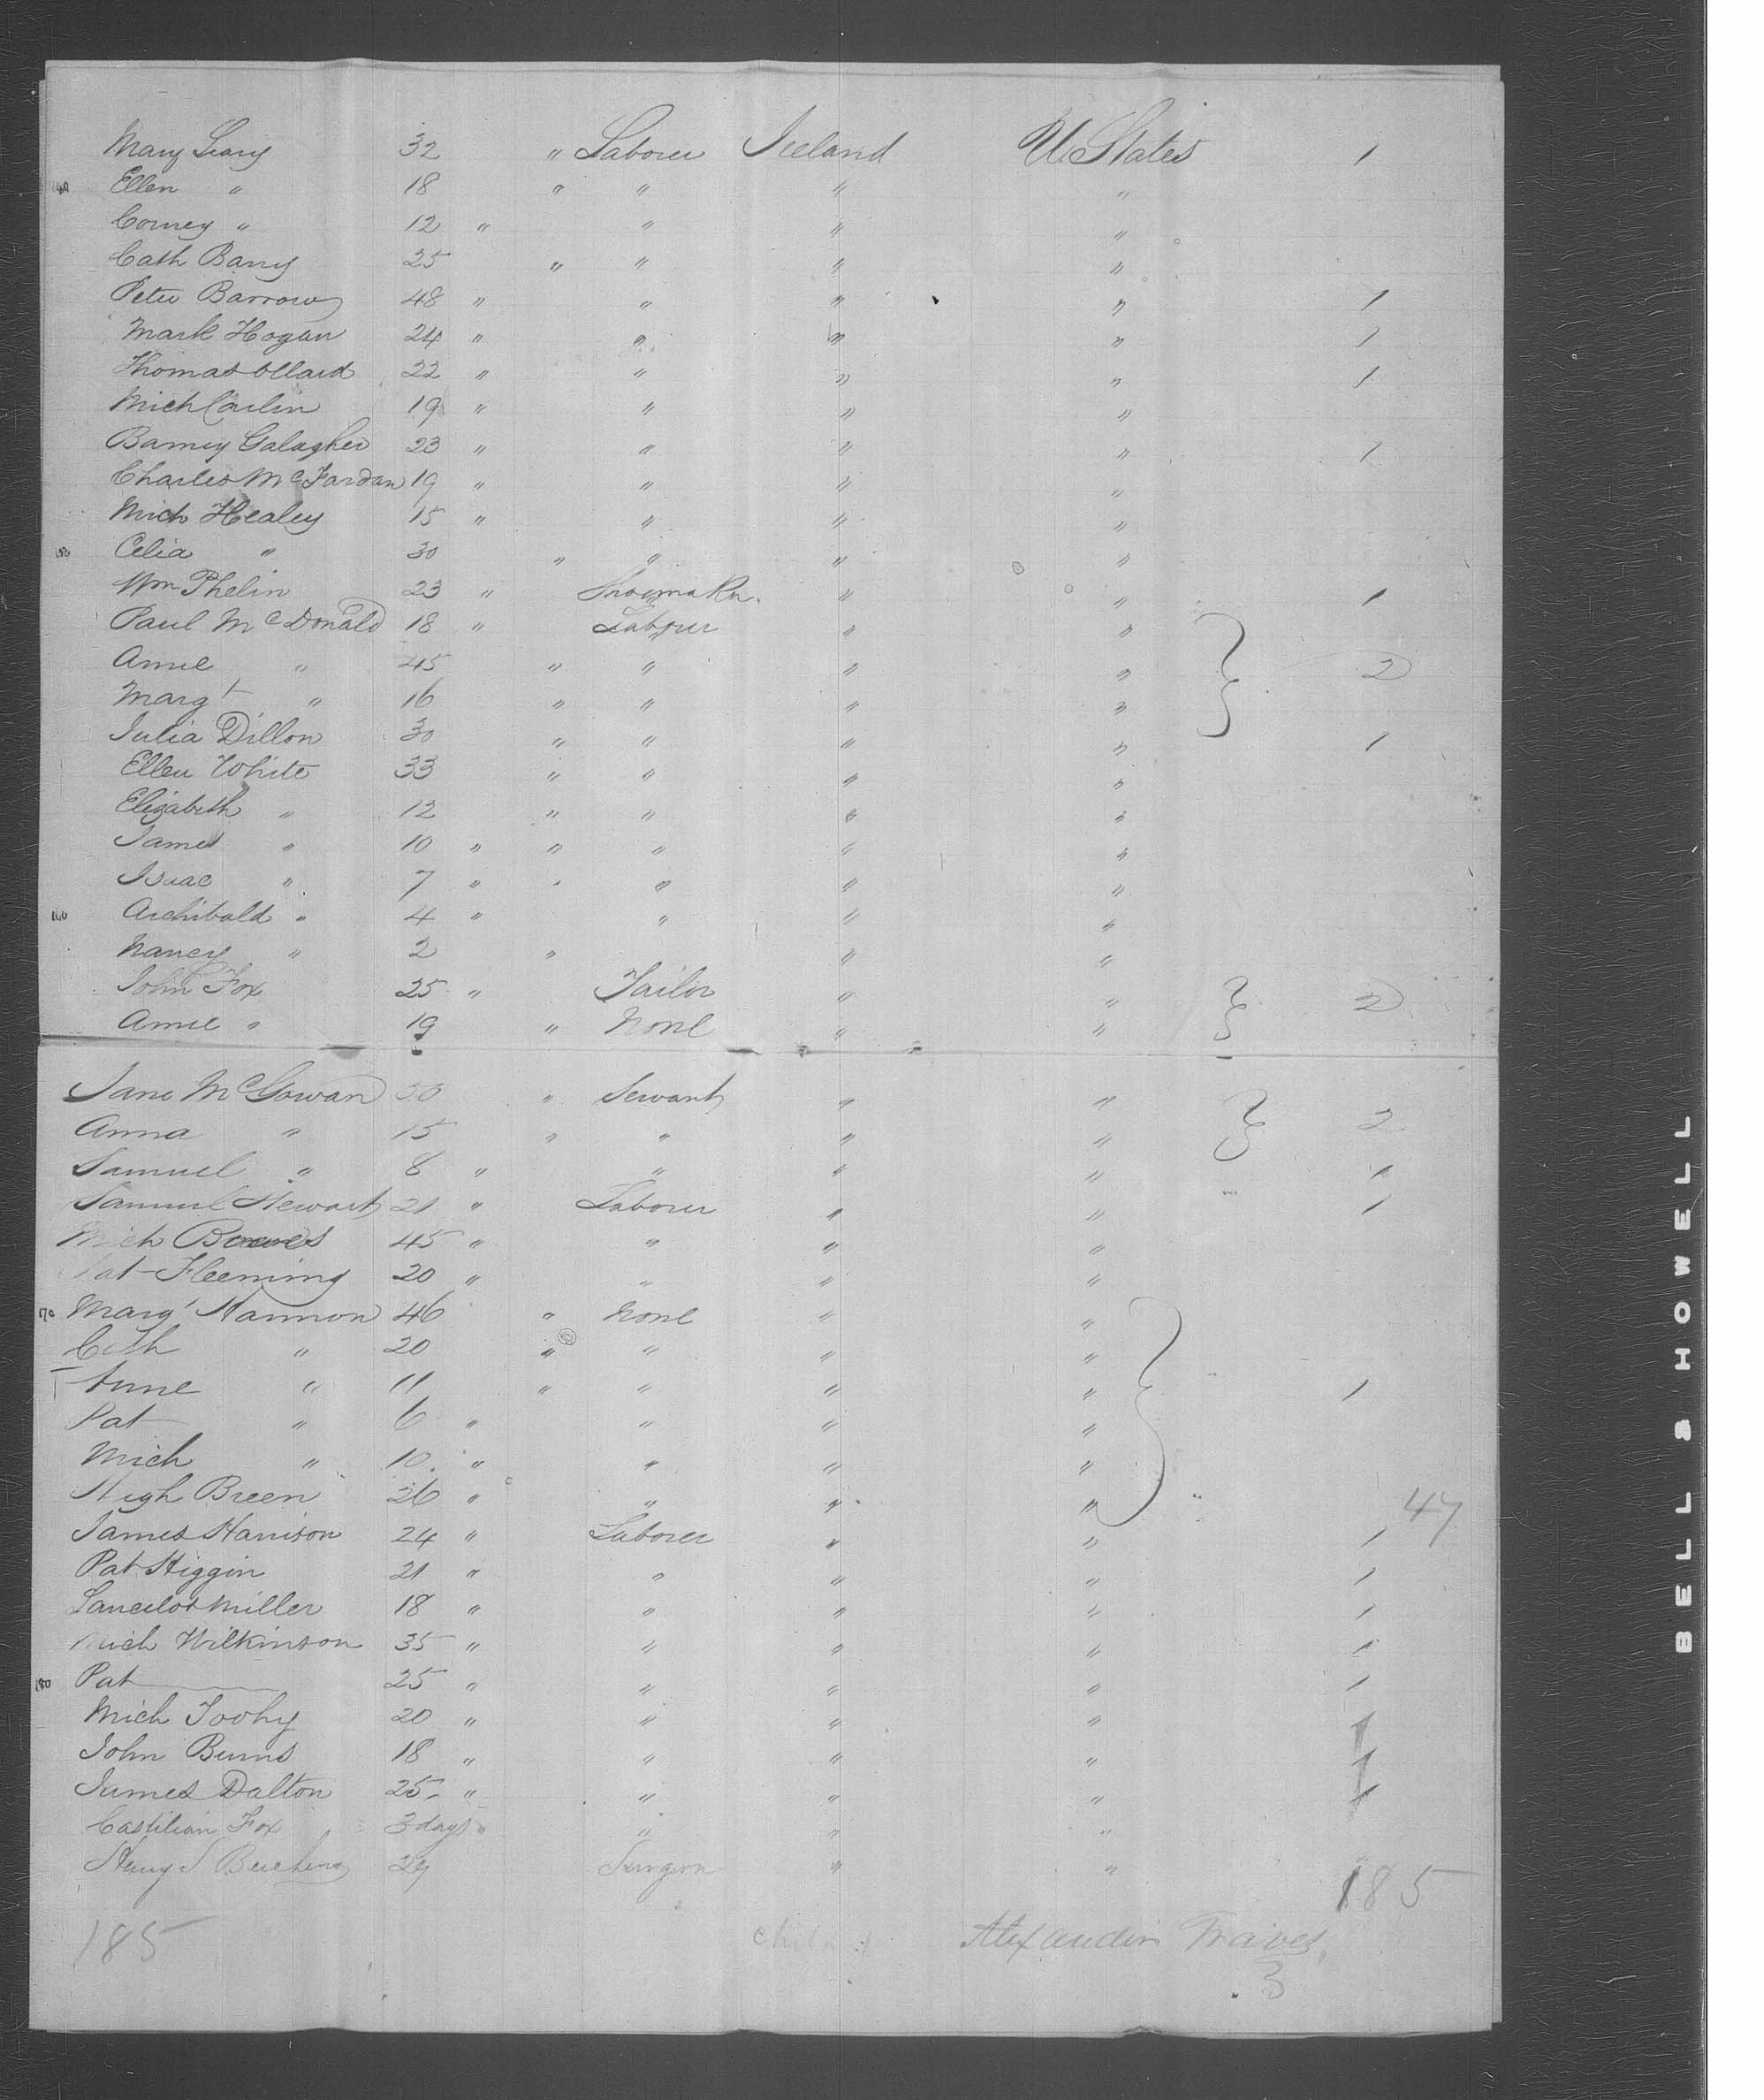 Mary Leary 32 " Laborer Ireland U. States 1
40 Ellen " 18 " " " "
Corney " 12 " " " "
Cath Barry 25 " " " "
Peter Barrow 48 " " " " 1
Mark Hogan 24 " " " " 1
Thomas Ollard 22 " " " " 1
Mich Carlin 19 " " " "
Barney Galagher 23 " " " " 1
Charles McFardan 19 " " " "
Mich Healey 15 " " " "
150 Celia " 30 " " " "
Wm Phelin 23 " Shoemaker. " " 1
Paul McDonald 18 " Laborer " "
Anne " 45 " " " " 2
Margt " 16 " " " "
Julia Dillon 30 " " " " 1
Ellen White 33 " " " "
Elizabeth " 12 " " " "
James " 10 " " " " "
Isaac " 7 " " " "
160 Archibald " 4 " " " "
Nancy " 2 " " "
John Fox 25 " Tailor " " 2
Anne " 19 " None " "
Jane McGowan 50 " Servant " "
Anna " 15 " " " " 2
Samuel " 8 " " " " 1
Samuel Stewart 21 " Laborer " " 1
Mich 45 " " " "
Pat Fleeming 20 " " " "
170 Margt Hannon 46 " None " "
Cath " 20 " " " "
Anne " 11 " " " " 1
Pat " 6 " " " "
Mich " 10 " " " "
Hugh Breen 26 " " " " 47
James Harrison 24 " Laborer " " 1
Pat Higgin 21 " " " " 1
Lancelot Miller 18 " " " " 1
Mich Wilkinson 35 " " " " 1
180 Pat 25 " " " " 1
Mich Toohy 20 " " " " 1
John Burns 18 " " " " 1
James Dalton 25 " " " " 1
Castilian Fox 3 days " " " "
Henry S 29 Surgeon " "
185
185 Alexander
3
BELL & HOWELL